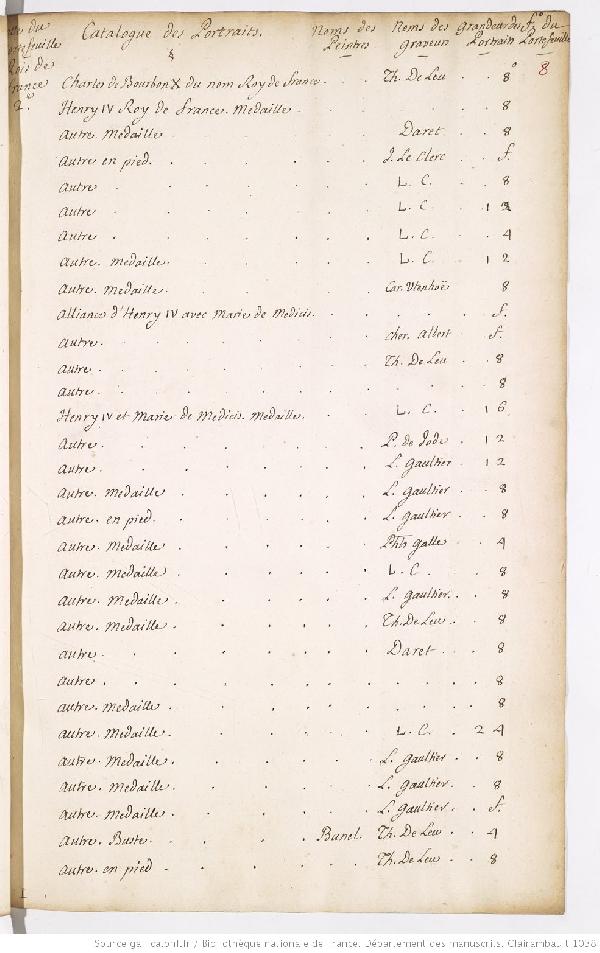 Catalogue des Portraits. Noms des Peintres Noms des graveurs Grandeur des Portraits fo. du Portefeuille
Rois de france
2.
8
Charles de Bourbon X du nom Roy de france . Th. De Leu . 8o
Henry IV Roy de france. Medaille . . . 8
Autre Medaille . . . Daret . . 8
Autre en pied . . . J. Le Clerc . . f.
Autre . . . L. C. . . 8
Autre . . . L. C . 12
Autre . . . L. C. . . 4
Autre. Medaille . . . L. C . 12
Autre. Medaille . . . Car. Utenhoë . 8
Alliance d'Henry IV avec Marie de Medicis . . . f.
Autre . . . cher. Albert . f.
Autre . . . Th. De Leu . . 8
Autre . . . 8
Henry IV et Marie de Medicis. Medaille . . . L. C. . 16
Autre . . . P. de Jode . 12
Autre . . . L. gaultier . 12
Autre. Medaille . . . L. gaultier . . 8
Autre. en pied . . . L. gaultier . . 8
Autre. Medaille . . . Phls galle . . 4
Autre. Medaille . . . L. C. . . 8
Autre. Medaille . . . L. gaultier . . 8
Autre. Medaille . . . Th. De Leu . . 8
Autre . . . Daret . . 8
Autre . . . 8
Autre. Medaille . . . 8
Autre. Medaille . . . L. C. . 24
Autre. Medaille . . . L. gaultier . . 8
Autre. Medaille . . . L. gaultier . . 8
Autre. Medaille . . . L. gaultier . . f.
Autre. Buste . . . Bunel . Th. De Leu . . 4
Autre. en pied . . . Th. De Leu . . 8
Source gallica.bnf.fr / Bibliothèque nationale de France. Département des manuscrits. Clairambault 1038